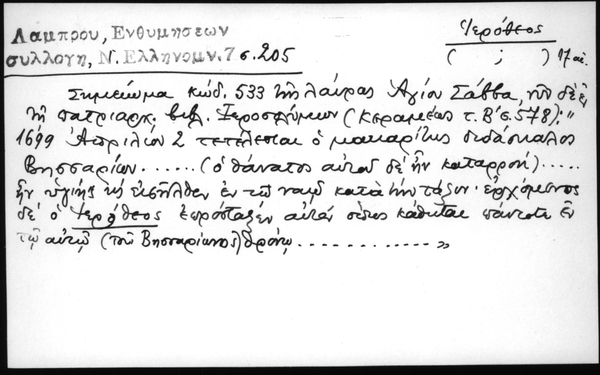 Λαμπρου, Ενθυμησεων
Ἱερόθεος
συλλογη, Ν. Ελληνομν. 7 σ. 205
( ; ) 17 αι.
Σημείωμα κώδ. 533 τῆς λαύρας Ἁγίου Σάββα, νῦν δὲ ἐν
τῇ πατριαρχ. βιβλ. Ἱεροσολύμων (Κεραμέως τ. Β' σ. 578): "
1699 Ἀπριλίου 2 τετέλεσται ὁ μακαρίτης διδάσκαλος
Βησσαρίων ...... (ὁ θάνατος αὐτοῦ δὲ ἦν καταρροή) ....
ἦν ὑγιὴς τις εἰσῆλθεν ἐν τῷ ναῷ κατὰ τὴν τάξιν· ἐρχόμενος
δὲ ὁ Ἱερόθεος ἐπρόσταξεν αὐτὸν οὕτως κάθηται πάντοτε ἐν
τῷ αὐτῷ (τοῦ Βησσαρίωνος) θρόνῳ ............. "